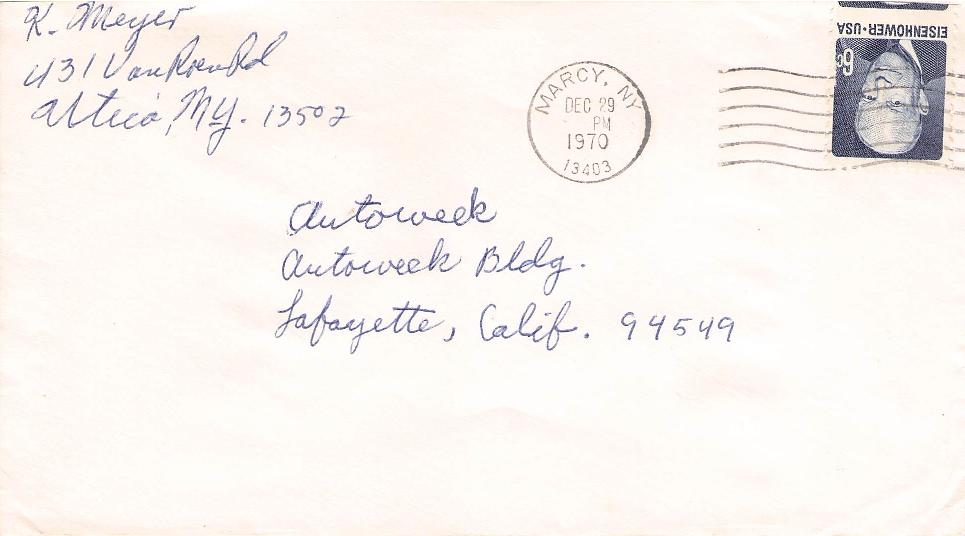 K. Meyer
431 Van Roen Rd
Utica, NY. 13502
MARCY, NY
DEC 29
PM
1970
13403
EISENHOWER·USA
6c
Autoweek
Autoweek Bldg.
Lafayette, Calif. 94549